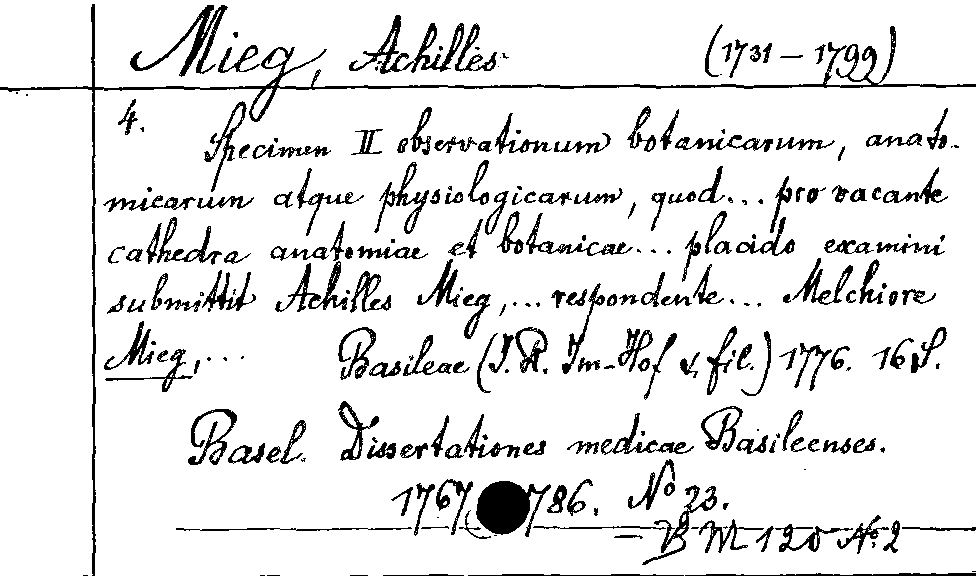 Mieg, Achilles (1731-1799)
4.
Specimen II observationum botanicarum, anato-
micarum atque physiologicarum, quod... pro vacante
cathedra anatomiae et botanicae... placido examini
submittit Achilles Mieg,... respondente... Melchiore
Mieg,... Basileae (J. R. Im-Hof & fil.) 1776. 16 S.
Basel. Dissertationes medicae Basileenses.
1767 786. No 23.
- B M 120 No 2